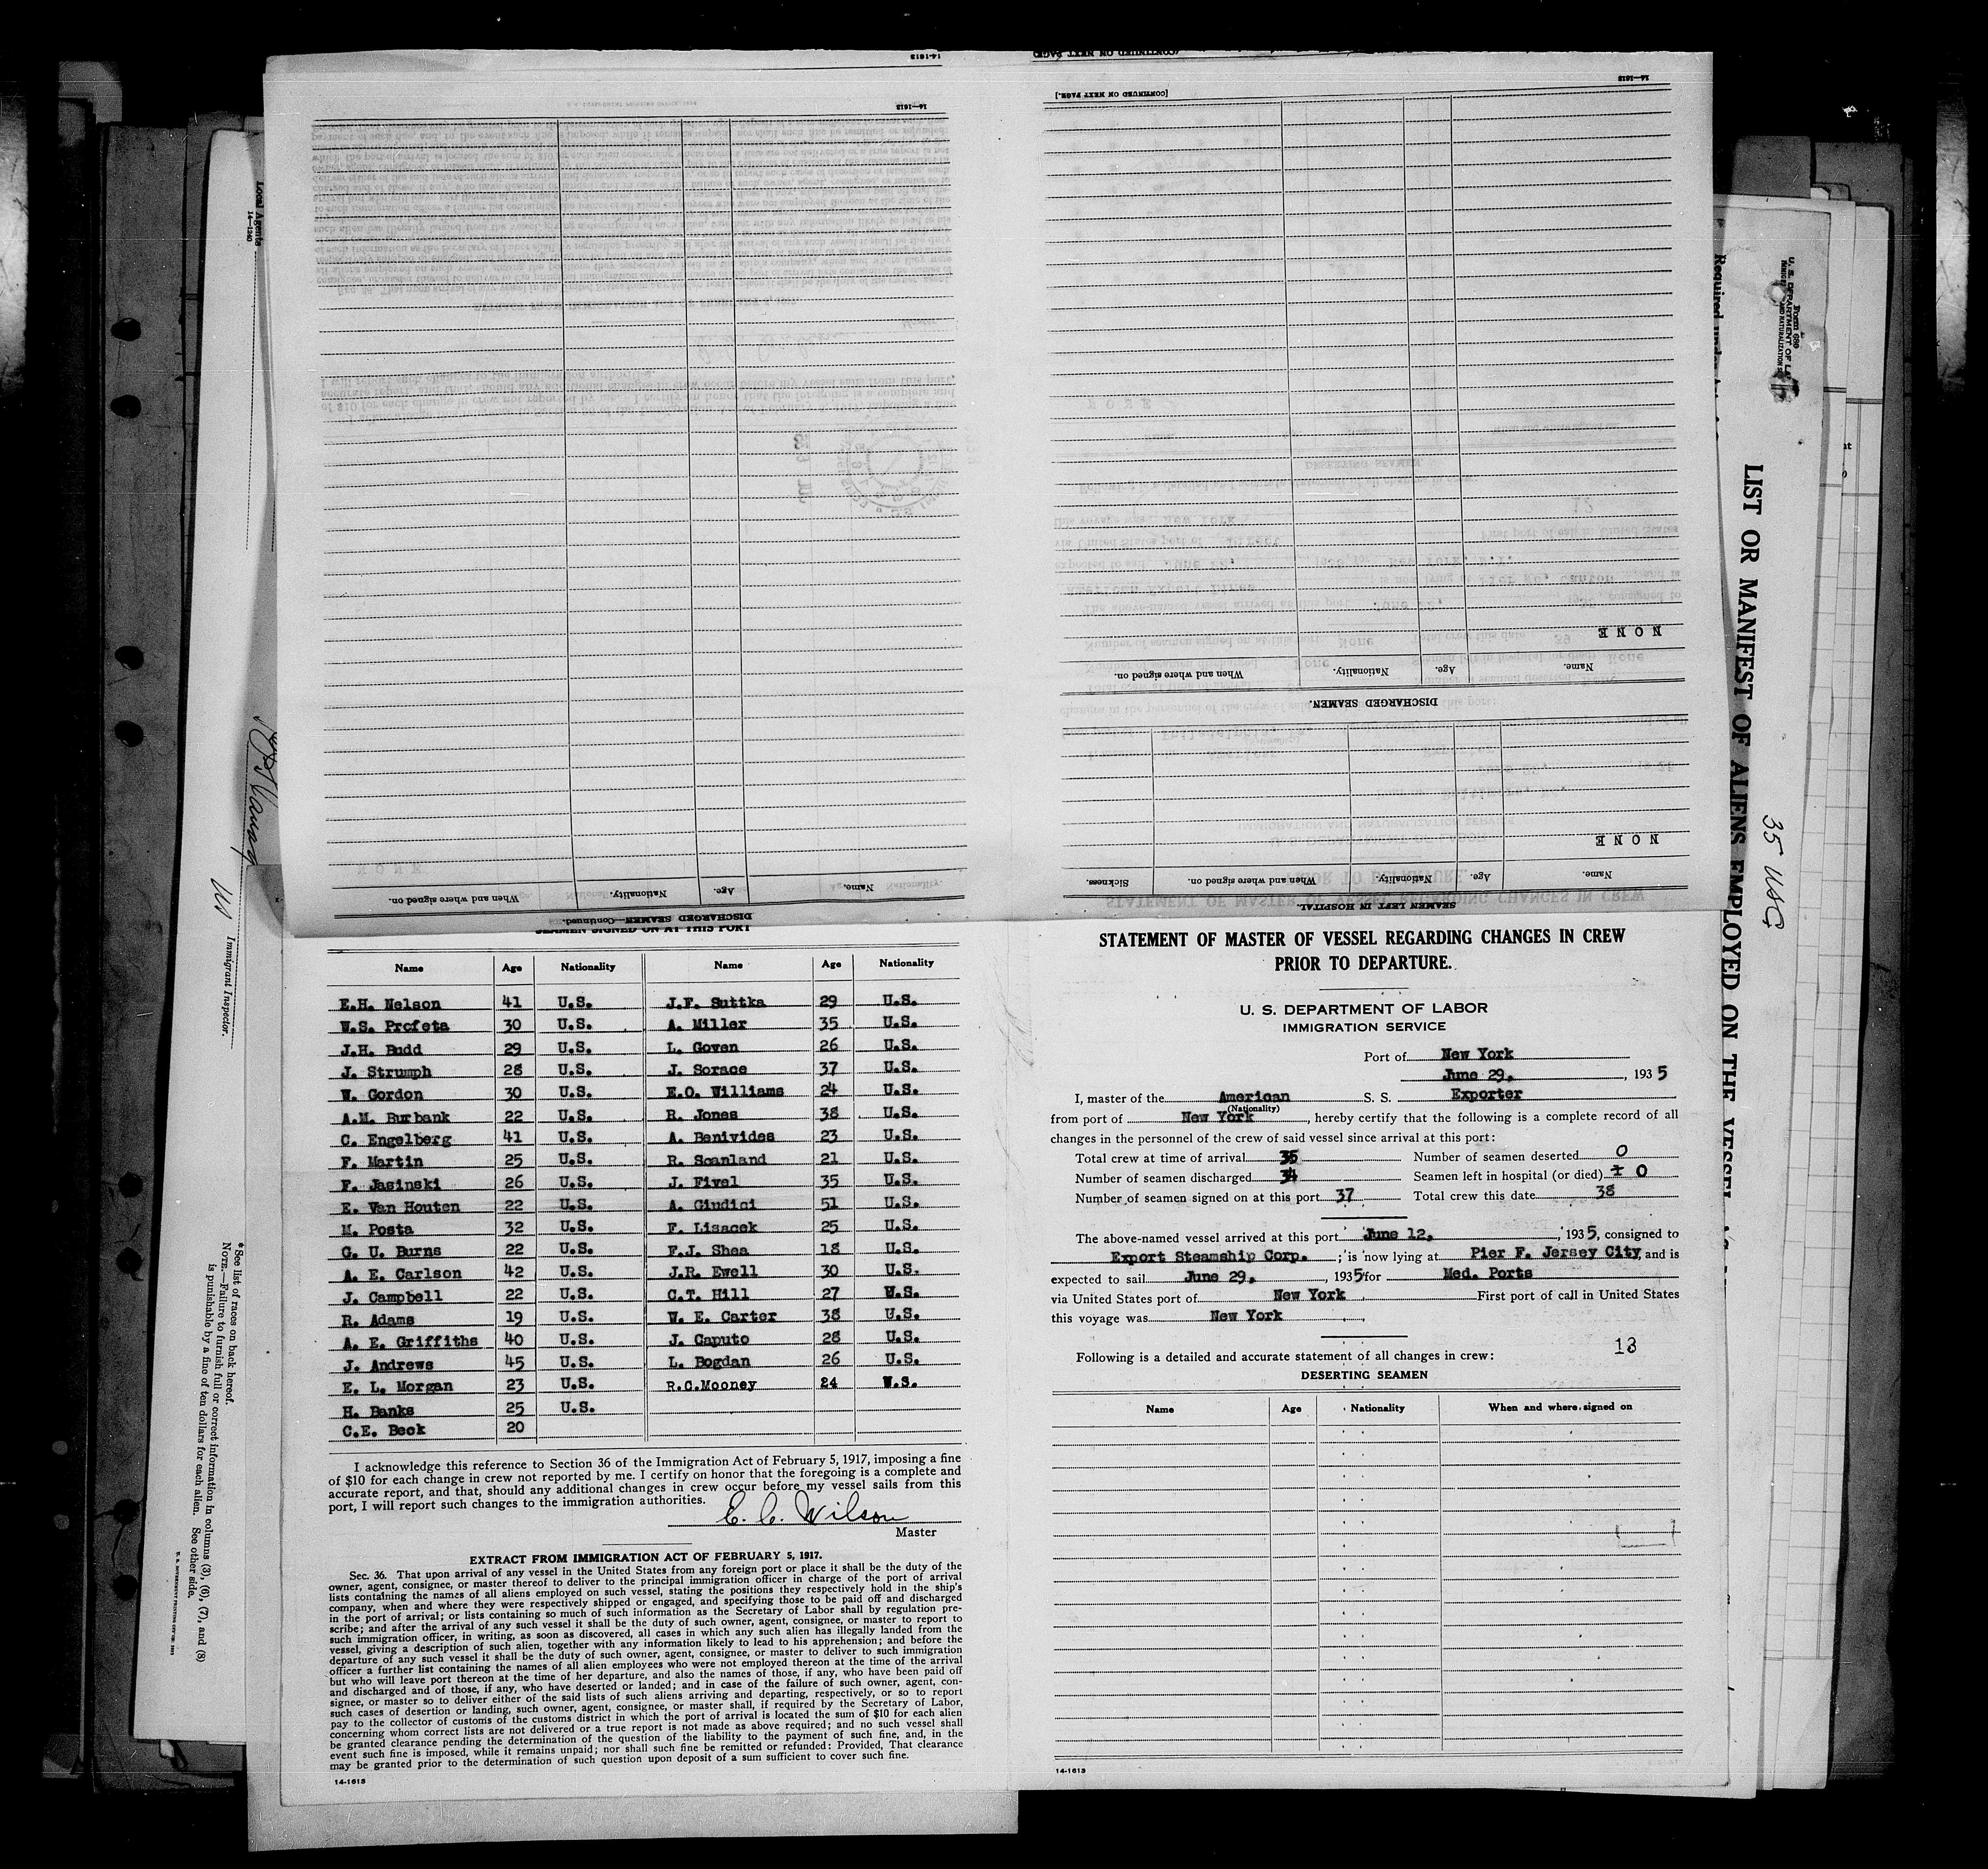 STATEMENT OF MASTER OF VESSEL REGARDING CHANGES IN CREW
PRIOR TO DEPARTURE.
U. S. DEPARTMENT OF LABOR
IMMIGRATION SERVICE
Port of New York
June 29, , 1935
I, master of the American S. S. Exporter
(Nationality)
from port of New York, hereby certify that the following is a complete record of all
changes in the personnel of the crew of said vessel since arrival at this port:
Total crew at time of arrival 35 Number of seamen deserted 0
Number of seamen discharged 34 Seamen left in hospital (or died) 0
Number of seamen signed on at this port 37 Total crew this date 38
The above-named vessel arrived at this port June 12, , 1935, consigned to
Export Steamship Corp. ; is now lying at Pier F. Jersey City and is
expected to sail June 29, , 1935 for Med. Ports
via United States port of New York First port of call in United States
this voyage was New York
13
Following is a detailed and accurate statement of all changes in crew:
DESERTING SEAMEN
Name Age Nationality When and where signed on
14-1613
SEAMEN SIGNED ON AT THIS PORT
Name Age Nationality Name Age Nationality
E.H. Nelson 41 U.S. J.F. Suttka 29 U.S.
W.S. Profeta 30 U.S. A. Miller 35 U.S.
J.H. Budd 29 U.S. L. Goven 26 U.S.
J. Strumph 28 U.S. J. Sorace 37 U.S.
W. Gordon 30 U.S. E.O. Williams 24 U.S.
A.M. Burbank 22 U.S. R. Jones 38 U.S.
C. Engelberg 41 U.S. A. Benivides 23 U.S.
F. Martin 25 U.S. R. Scanland 21 U.S.
F. Jasinski 26 U.S. J. Fivel 35 U.S.
E. Van Houten 22 U.S. A. Giudici 51 U.S.
M. Posta 32 U.S. F. Lisacek 25 U.S.
G. U. Burns 22 U.S. F.J. Shea 18 U.S.
A. E. Carlson 42 U.S. J.R. Ewell 30 U.S.
J. Campbell 22 U.S. C.T. Hill 27 U.S.
R. Adams 19 U.S. W. E. Carter 38 U.S.
A. E. Griffiths 40 U.S. J. Caputo 28 U.S.
J. Andrews 45 U.S. L. Bogdan 26 U.S.
E. L. Morgan 23 U.S. R.C.Mooney 24 U.S.
H. Banks 25 U.S.
C.E. Beck 20
I acknowledge this reference to Section 36 of the Immigration Act of February 5, 1917, imposing a fine
of $10 for each change in crew not reported by me. I certify on honor that the foregoing is a complete and
accurate report, and that, should any additional changes in crew occur before my vessel sails from this
port, I will report such changes to the immigration authorities.
E. C. Wilson
Master
EXTRACT FROM IMMIGRATION ACT OF FEBRUARY 5, 1917.
Sec. 36. That upon arrival of any vessel in the United States from any foreign port or place it shall be the duty of the
owner, agent, consignee, or master thereof to deliver to the principal immigration officer in charge of the port of arrival
lists containing the names of all aliens employed on such vessel, stating the positions they respectively hold in the ship's
company, when and where they were respectively shipped or engaged, and specifying those to be paid off and discharged
in the port of arrival; or lists containing so much of such information as the Secretary of Labor shall by regulation pre-
scribe; and after the arrival of any such vessel it shall be the duty of such owner, agent, consignee, or master to report to
such immigration officer, in writing, as soon as discovered, all cases in which any such alien has illegally landed from the
vessel, giving a description of such alien, together with any information likely to lead to his apprehension; and before the
departure of any such vessel it shall be the duty of such owner, agent, consignee, or master to deliver to such immigration
officer a further list containing the names of all alien employees who were not employed thereon at the time of the arrival
but who will leave port thereon at the time of her departure, and also the names of those, if any, who have been paid off
and discharged and of those, if any, who have deserted or landed; and in case of the failure of such owner, agent, con-
signee, or master so to deliver either of the said lists of such aliens arriving and departing, respectively, or so to report
such cases of desertion or landing, such owner, agent, consignee, or master shall, if required by the Secretary of Labor,
pay to the collector of customs of the customs district in which the port of arrival is located the sum of $10 for each alien
concerning whom correct lists are not delivered or a true report is not made as above required; and no such vessel shall
be granted clearance pending the determination of the question of the liability to the payment of such fine, and, in the
event such fine is imposed, while it remains unpaid; nor shall such fine be remitted or refunded: Provided, That clearance
may be granted prior to the determination of such question upon deposit of a sum sufficient to cover such fine.
14-1613
SEAMEN LEFT IN HOSPITAL.
Name. Age. Nationality. When and where signed on. Sickness.
NONE
DISCHARGED SEAMEN.
Name. Age. Nationality. When and where signed on.
NONE
[CONTINUED ON NEXT PAGE.]
14-1613
DISCHARGED SEAMEN—Continued.
Name. Age. Nationality. When and where signed on.
14-1613
Local Agents
14-1240
US
Immigrant Inspector.
* See list of races on back hereof.
NOTE.—Failure to furnish full or correct information in columns (3), (6), (7), and (8)
is punishable by a fine of ten dollars for each alien. See other side.
Form 689
U. S. DEPARTMENT OF LAB
LIST OR MANIFEST OF ALIENS EMPLOYED ON THE VESSEL
35 USC